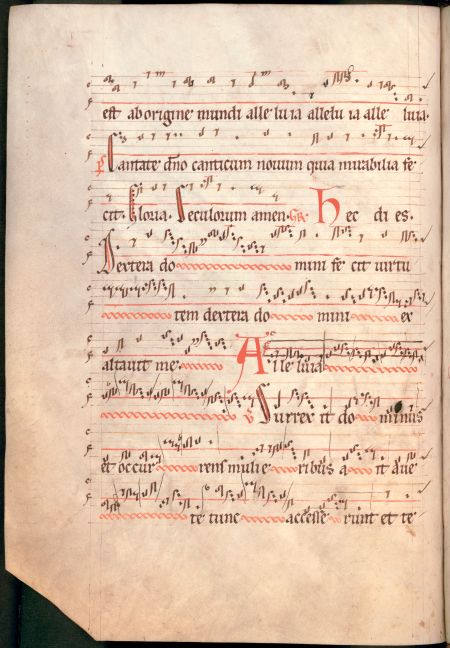 est ab origine mundi alle lu ia allelu ia alle luia.
Cantate dno canticum novum quia mirabilia fe
cit. Gloria. Seculorum amen. Hec di es.
Dextera do mini fe cit virtu
tem dextera do mini ex
altavit me. Alle luia
Surrex it do minus
et occur rens mulie ribus a it ave
te tunc accesse runt et te